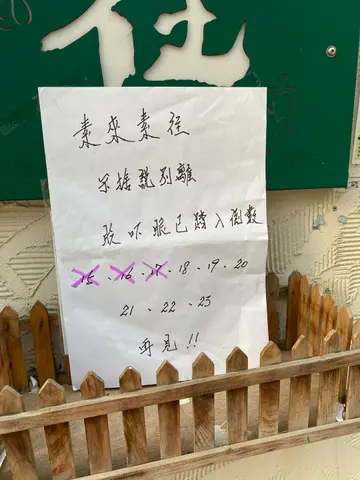 往
素來素往
不捨說別離
眨吓眼已踏入倒數
15、16、17、18、19、20
21、22、23
再見!!